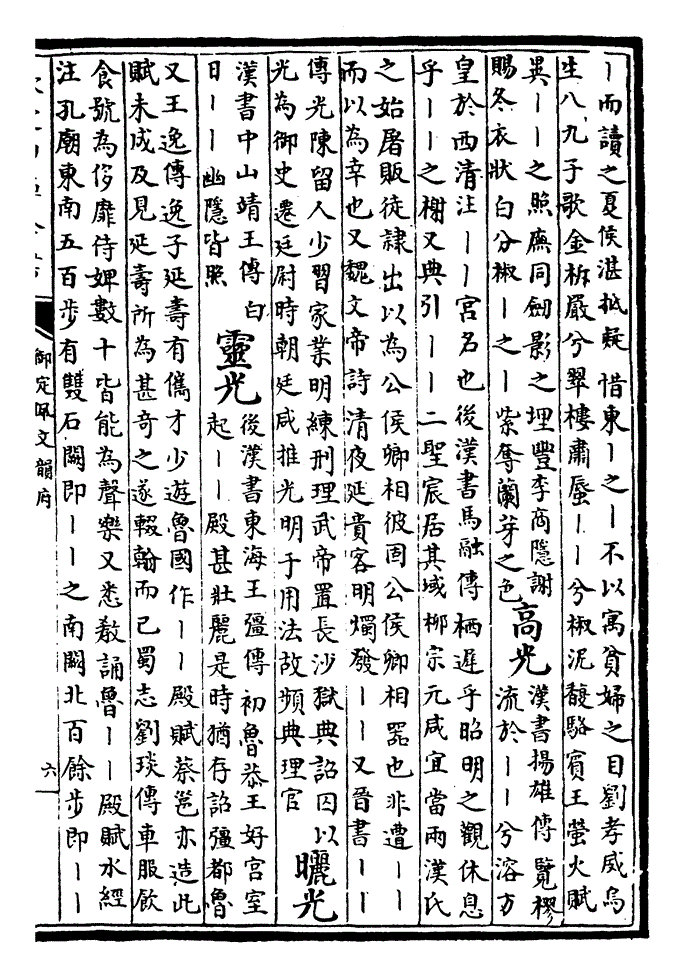 丨而讀之夏侯湛抵疑惜東丨之丨不以寓貧婦之目劉孝威烏
生八九子歌金柝嚴兮翠樓肅蜃丨丨兮椒泥馥駱賓王螢火賦
吳丨丨之照廡同劍影之埋豐李商隱謝
賜冬衣狀白分椒丨之丨紫奪蘭芽之色
高光
漢書揚雄傳覽樛
流於丨丨兮溶方
皇於西清注丨丨宮名也後漢書馬融傳栖遲乎昭明之觀休息
乎丨丨之榭又典引丨丨二聖宸居其域柳宗元咸宜當兩漢氏
之始屠販徒隸出以為公侯卿相彼固公侯卿相器也非遭丨丨
而以為幸也又魏文帝詩清夜延貴客明燭發丨丨又晉書丨丨
傳光陳留人少習家業明練刑理武帝置長沙獄典詔囚以
光為御史遷廷尉時朝廷咸推光明于用法故頻典理官
曬光
漢書中山靖王傳白
日丨丨幽隱皆照
靈光
後漢書東海王彊傳初魯恭王好宮室
起丨丨殿甚壯麗是時猶存詔彊都魯
又王逸傳逸子延壽有儁才少遊魯國作丨丨殿賦蔡邕亦造此
賦未成及見延壽所為甚奇之遂輟翰而已蜀志劉琰傳車服飲
食號為侈靡侍婢數十皆能為聲樂又悉教誦魯丨丨殿賦水經
注孔廟東南五百步有雙石闕即丨丨之南闕北百餘步即丨丨
御定佩文韻府
六